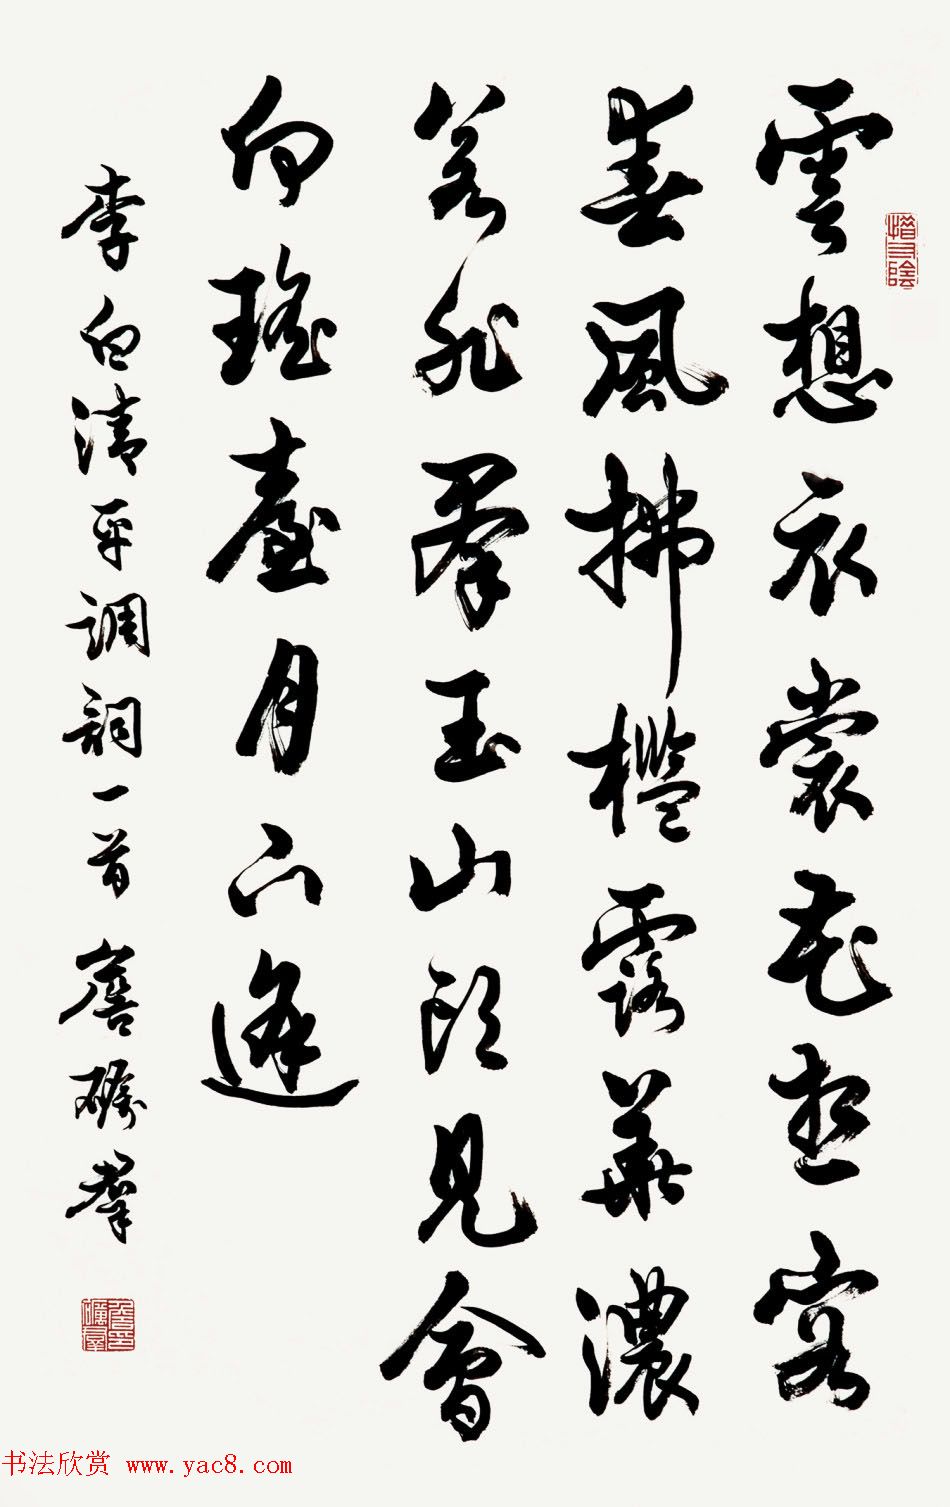 雲想衣裳花想容
春風拂檻露華濃
若非羣玉山頭見會
向瑤臺月下逢
李白清平調詞一首 詹礪羣
惜寸陰
书法欣赏 www.yac8.com